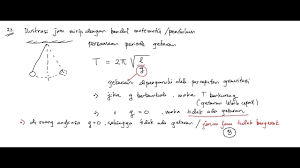 23. Ilustrasi jam mirip dengan bandul matematis / pendulum
persamaan periode getaran
T = 2π √(l/g)
getaran dipengaruhi oleh percepatan gravitasi
→ jika g bertambah, maka T berkurang
(getaran lebih cepat)
→ g = 0, maka tidak ada getaran
∴ di ruang angkasa g = 0, sehingga tidak ada getaran / jarum jam tidak bergerak